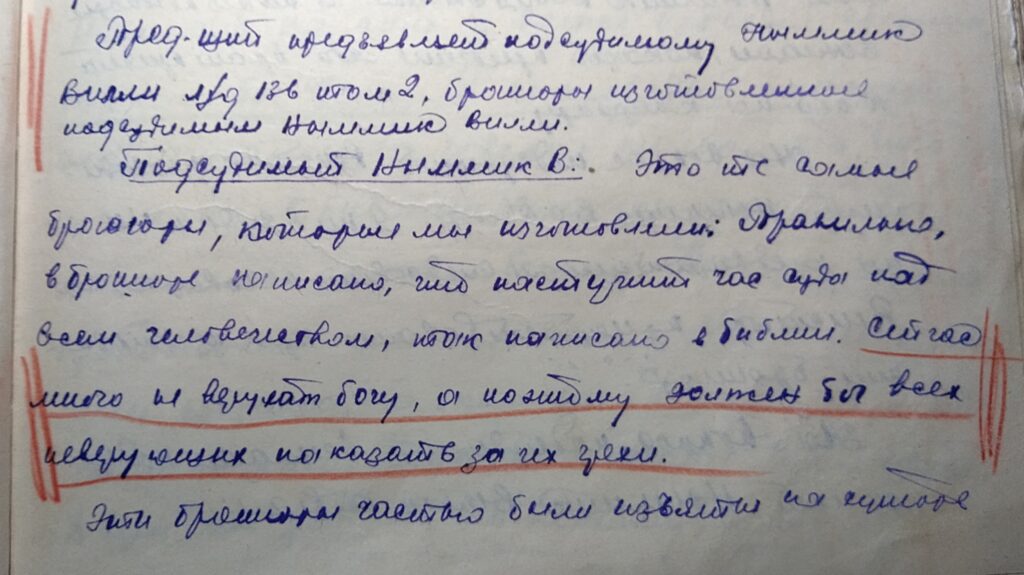 Пред-щий предъявляет подсудимому Ныммик
Вилли л/д 136 том 2, брошюры изготовленные
подсудимым Ныммик Вилли.
Подсудимый Ныммик В:. Это те самые
брошюры, которые мы изготовили. Правильно,
в брошюре написано, что наступит час суда над
всем человечеством, так написано в библии. Сейчас
много не веруют богу, а поэтому должен бы всех
неверующих показать за их грехи.
Эти брошюры частью были изъяты на хуторе